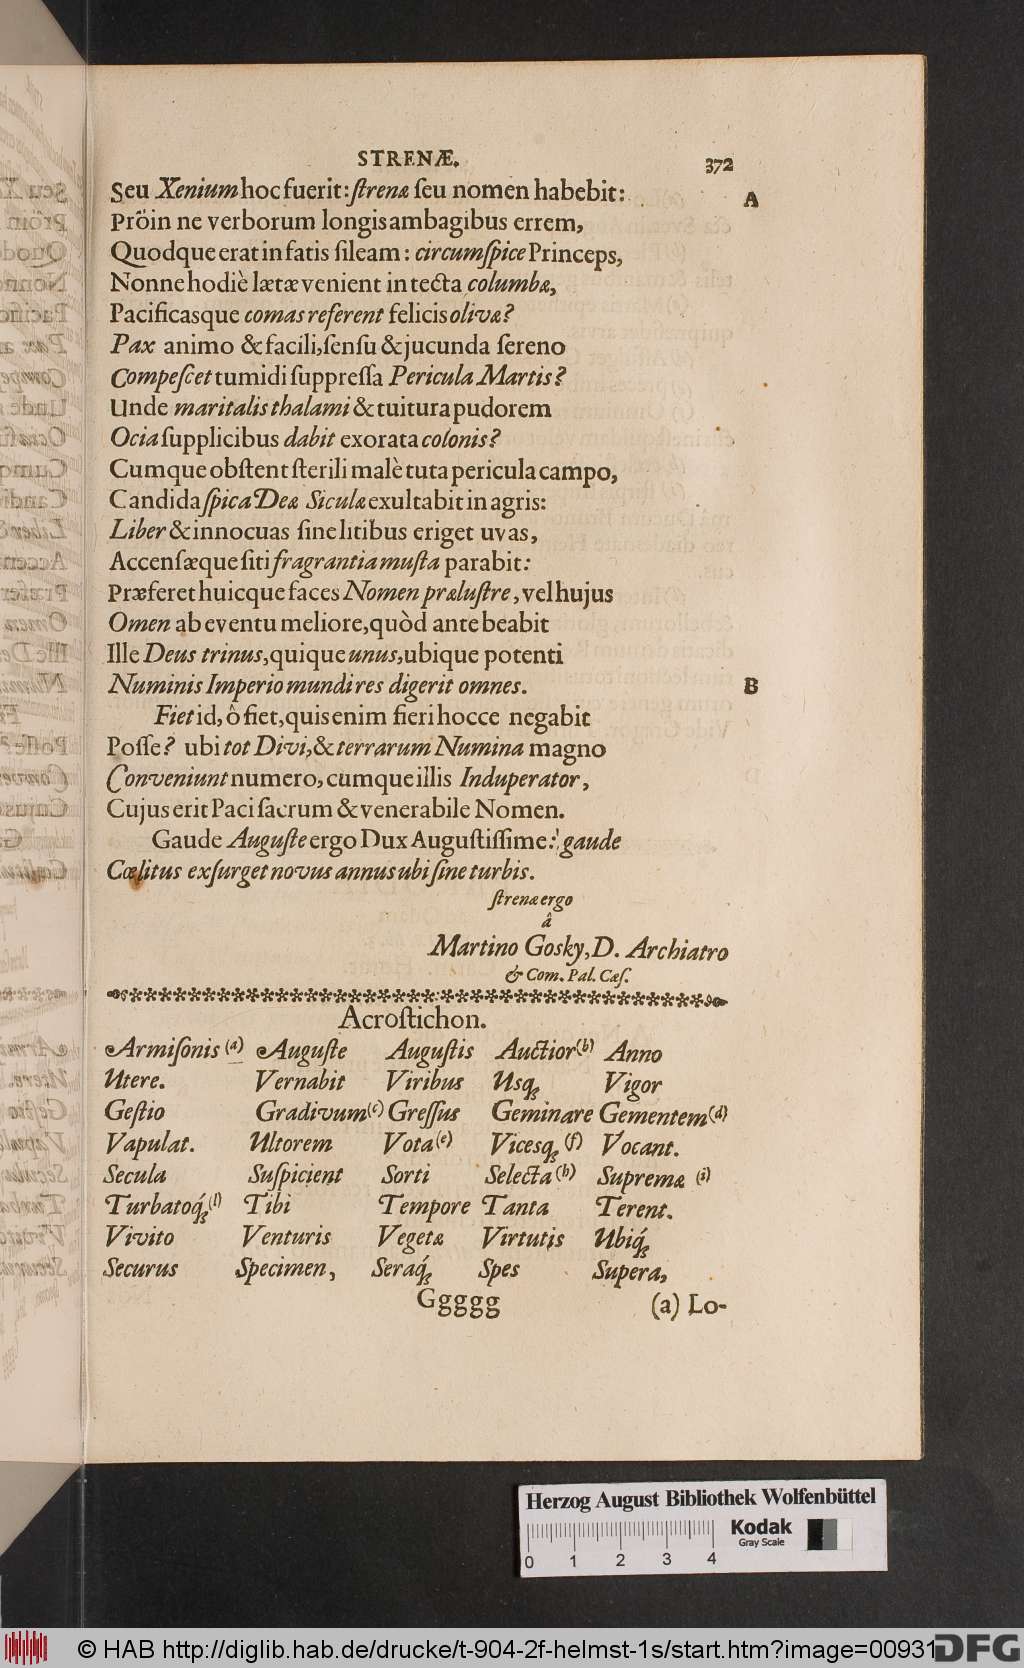 STRENÆ. 372
Seu Xenium hoc fuerit: ſtrenæ ſeu nomen habebit: A
Prôin ne verborum longis ambagibus errem,
Quodque erat in fatis ſileam: circumſpice Princeps,
Nonne hodiè lætæ venient in tecta columbæ,
Pacificasque comas referent felicis olivæ?
Pax animo & facili, ſenſu & jucunda ſereno
Compeſcet tumidi ſuppreſſa Pericula Martis?
Unde maritalis thalami & tuitura pudorem
Ocia ſupplicibus dabit exorata colonis?
Cumque obſtent ſterili malè tuta pericula campo,
Candida ſpica Deæ Siculæ exultabit in agris:
Liber & innocuas ſine litibus eriget uvas,
Accenſæque ſiti fragrantia muſta parabit:
Præferet huicque faces Nomen præluſtre, vel hujus
Omen ab eventu meliore, quòd ante beabit
Ille Deus trinus, quique unus, ubique potenti
Numinis Imperio mundi res digerit omnes. B
Fiet id, ô fiet, quis enim fieri hocce negabit
Poſſe? ubi tot Divi, & terrarum Numina magno
Conveniunt numero, cumque illis Induperator,
Cujus erit Paci ſacrum & venerabile Nomen.
Gaude Auguſte ergo Dux Auguſtiſſime: gaude
Cœlitus exſurget novus annus ubi ſine turbis.
ſtrenæ ergo
â
Martino Gosky, D. Archiatro
& Com. Pal. Cæſ.
Acroſtichon.
Armiſonis (a) Auguſte Auguſtis Auctior (b) Anno
Utere. Vernabit Viribus Usq; Vigor
Geſtio Gradivum (c) Greſſus Geminare Gementem (d)
Vapulat. Ultorem Vota (e) Vicesq; (f) Vocant.
Secula Suſpicient Sorti Selecta (h) Supremæ (i)
Turbatoq́; (l) Tibi Tempore Tanta Terent.
Vivito Venturis Vegetæ Virtutis Ubiq́;
Securus Specimen, Seraq́; Spes Supera,
Ggggg (a) Lo-
Herzog August Bibliothek Wolfenbüttel
0 1 2 3 4 Kodak
Gray Scale
© HAB http://diglib.hab.de/drucke/t-904-2f-helmst-1s/start.htm?image=00931
DFG